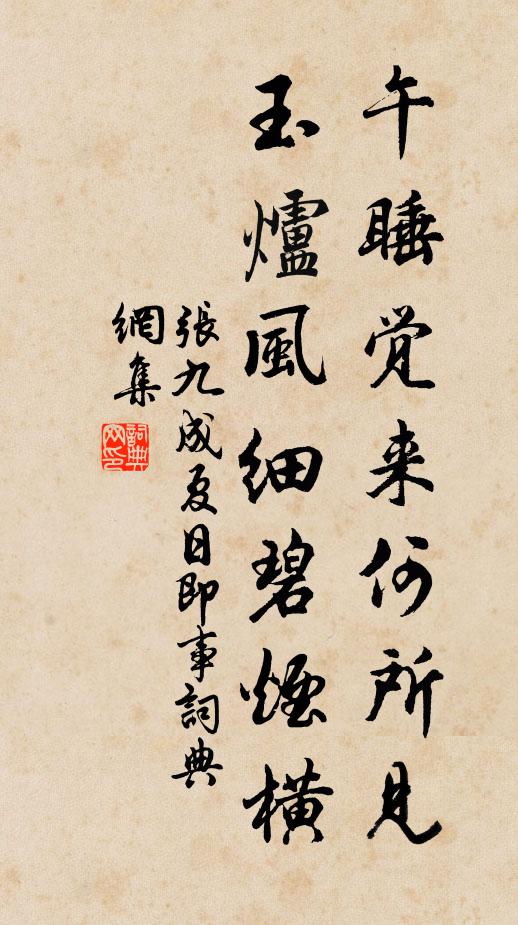 午睡觉来何所见
玉爐風細碧煙橫
張九成夏日即事詞典
網集
詞典
网印